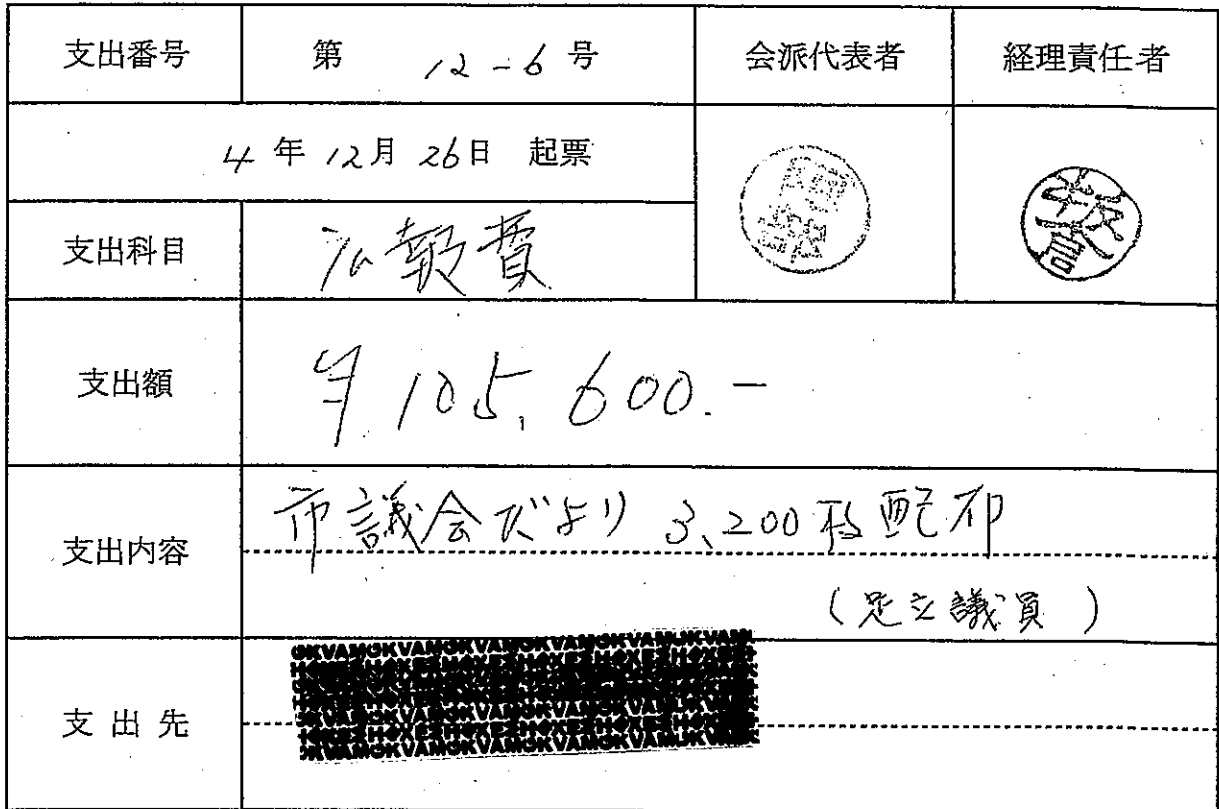 支出番号 第 12-6 号 会派代表者 経理責任者
4 年 12月 26日 起票
支出科目 広報費
支出額 ¥105,600.-
支出内容 市議会だより 3,200枚配布
(足立議員)
支出先